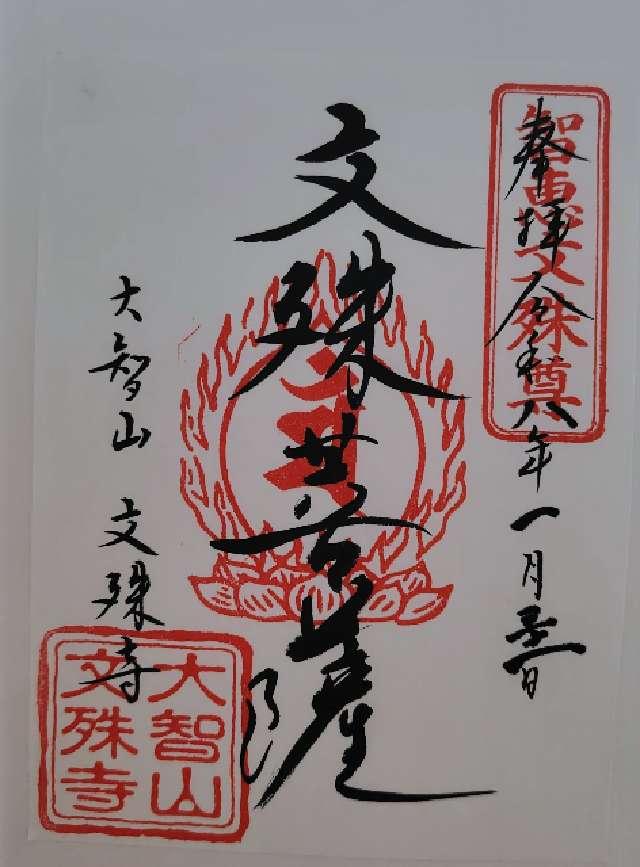 奉拝 令和八年一月日
智恵文殊尊
文殊菩薩
大智山 文殊寺
大智山
文殊寺